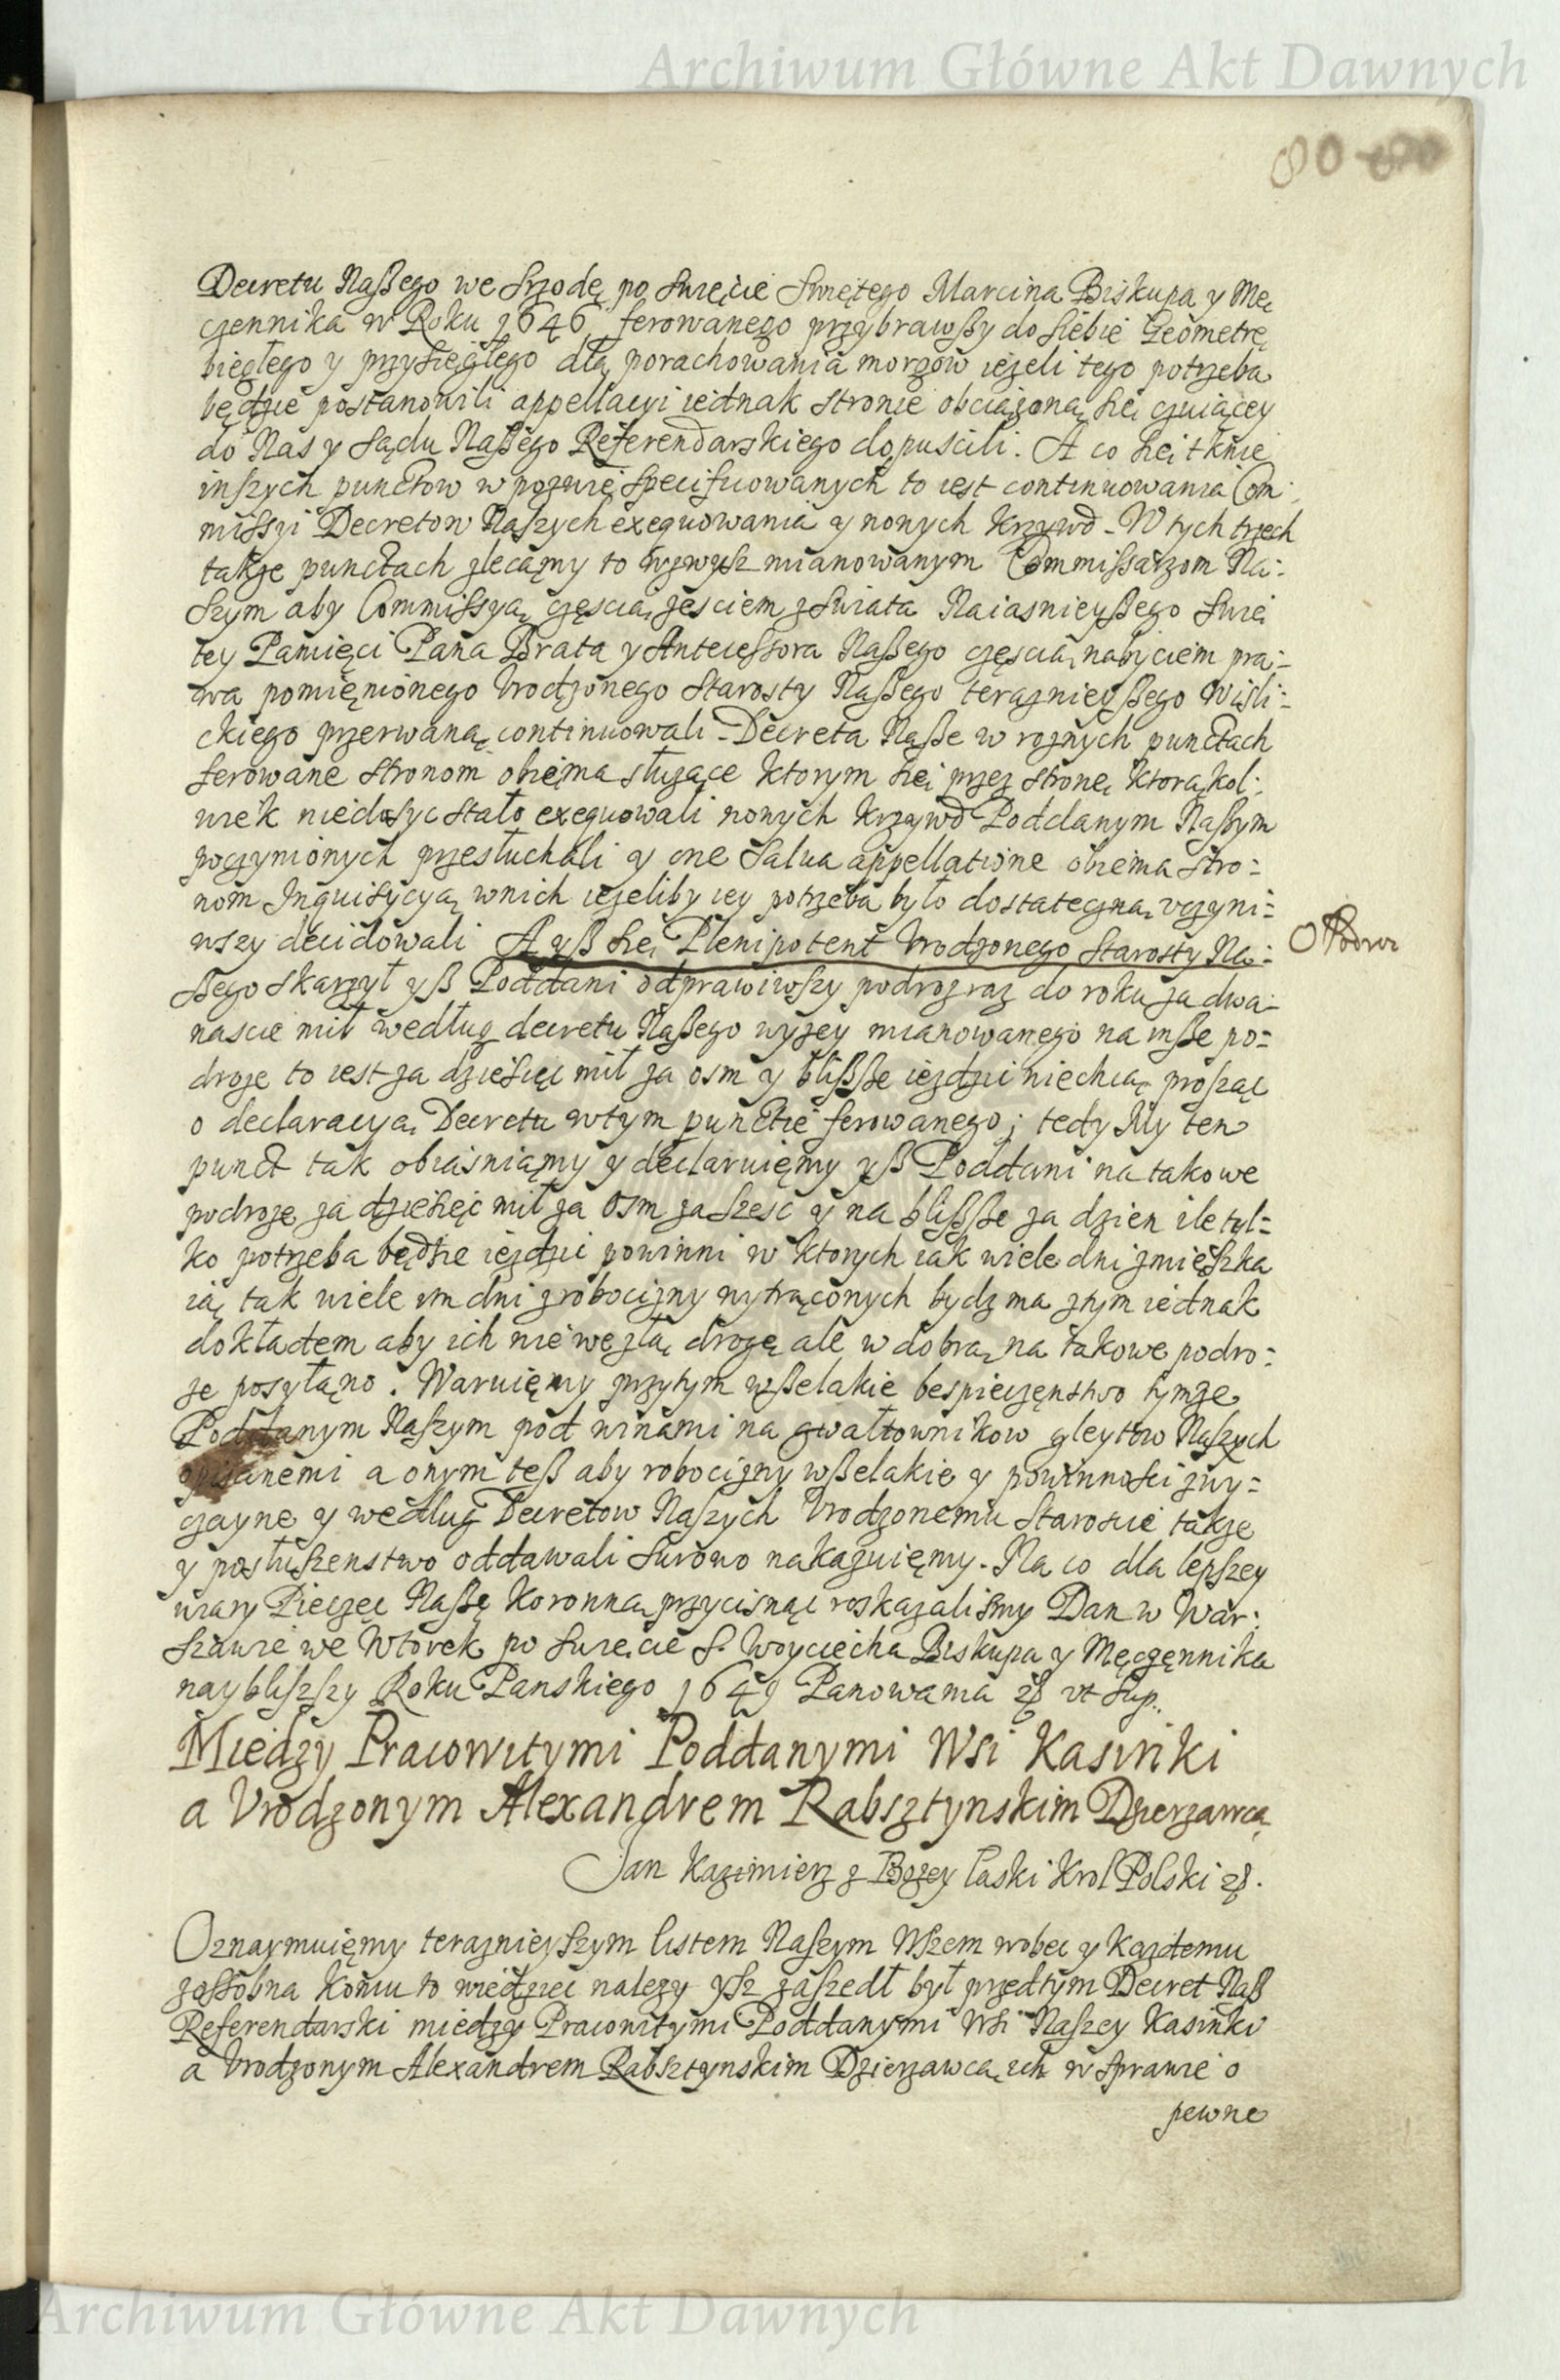 Archiwum Główne Akt Dawnych
80
Decretu Naßego we Srzodę po Swięcie Swiętego Marcina Biskupa y Mę
czennika w Roku 1646 ferowanego przybrawßy do siebie Geometrę
biegłego y przysięgłego dlą porachowania morgow ieżeli tego potrzeba
będzie postanowili appellacyi iednak stronie obciążoną się czuiącey
do Nas y Sądu Naßego Referendarskiego dopuscili. A co się tknie
inszych punctow w pozwie specificowanych to iest continuowania Com
missyi Decretow Naszych exequowania y nowych krzywd. W tych trzech
także punctach zlecąmy to wzwysz mianowanym Commissarzom Na=
szym aby Commissyą częscią ześciem z swiata Naiasnieyßego Swię
tey Pamięci Pana Brata y Antecessora Naßego częscią nabyciem pra=
wa pomięnionego Vrodzonego Starosty Naßego teraznieyßego Wisli=
ckiego przerwaną continuowali. Decreta Naße w roznych punctach
ferowane stronom obięma służące ktorym się przez stronę ktorąkol=
wiek niedosyc stało exequowali nowych krzywd Poddanym Naßym
poczynionych przesłuchali y one salua appellatione obiema stro=
nom Inquisycyą wnich ieżeliby iey potrzeba było dostateczną vczyni=
wszy decidowali A yß się Plenipotent Vrodzonego Starosty Na=
O Podroz
ßego skarzył yß Poddani odprawiwszy podroz raz do roku za dwa=
nascie mil według decretu Naßego wyzey mianowanego na inße po=
droze to iest za dziesięc mil za osm y blißße iezdzic niechcą prosząc
o declaracyą Decretu wtym punctie ferowanego; tedy My ten
punct tak obiasniąmy y declaruięmy yß Poddani na takowe
podroze za dziesięć mil za osm za szesc y na blißße za dzien ile tyl=
ko potrzeba będzie iezdzic powinni w ktorych iak wiele dni zmieszka
ią tak wiele im dni z robocizny wytrąconych bydz ma ztym iednak
dokładem aby ich nie wezłą drogę ale w dobrą na takowe podro=
ze posyłąno. Waruięmy przytym wßelakie bespieczęnstwo tymze
Poddanym Naszym pod winami na gwałtownikow gleytow Naszych
opisanemi a onym teß aby robocizny wßelakie y powinnosci zwy=
czayne y według Decretow Naszych Vrodzonemu Staroscie także
y posłuszenstwo oddawali surowo nakazuięmy. Na co dla lepszey
wiary Pieczęc Naßę Koronną przycisnąc roskazalismy Dan w War=
szawie we Wtorek po Swięcie S. Woyciecha Biskupa y Męczęnnika
naybliższy Roku Panskiego 1649 Panowania &c vt sup.
Miedzy Pracowitymi Poddanymi Wsi Kasinki
a Vrodzonym Alexandrem Rabsztynskim Dzierzawcą
Jan Kazimierz z Bozey łaski Krol Polski &c.
Oznaymuięmy teraznieyszym listem Naszym Wszem wobec y kazdemu
zossobna komu to wiedziec nalezy ysz zaszedł był przedtym Decret Naß
Referendarski miedzy Pracowitymi Poddanymi Wsi Naszey Kasinki
a Vrodzonym Alexandrem Rabsztynskim Dzierzawcą ich w sprawie o
pewne
Archiwum Główne Akt Dawnych